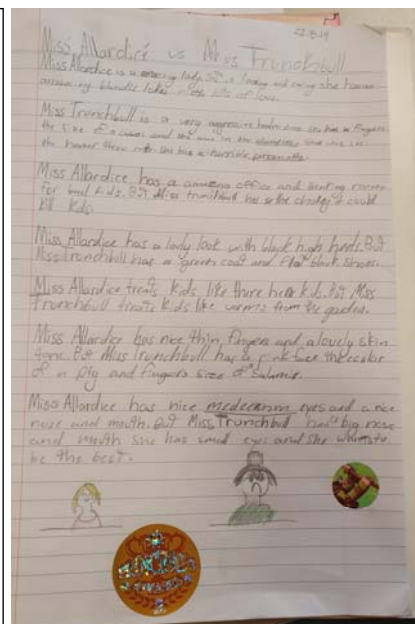 22.8.19
Miss Allardice vs Miss Trunchbull
Miss Allardice is a amazing lady. She is loving and caring she has an
amazing blondie lots of love.
Miss Trunchbull is a very aggressive she has a fingers
the size and the in the she in
the hammer throw she has a horrible
Miss Allardice has a amazing office and waiting room
for kids. But Miss trunchbull has the chokey it could
kill kids.
Miss Allardice has a lady look with black high heels. But
Miss Trunchbull has a green coat and flat black shoes.
Miss Allardice treats kids like there her kids. But Miss
Trunchbull treats kids like worms from the garden.
Miss Allardice has nice thin fingers and a lovely skin
tone. But Miss Trunchbull has a pink face the color
of a pig and fingers size of salamis.
Miss Allardice has nice eyes and a nice
nose and mouth. But Miss Trunchbull has a big nose
and mouth she has small eyes and she wants to
be the best.